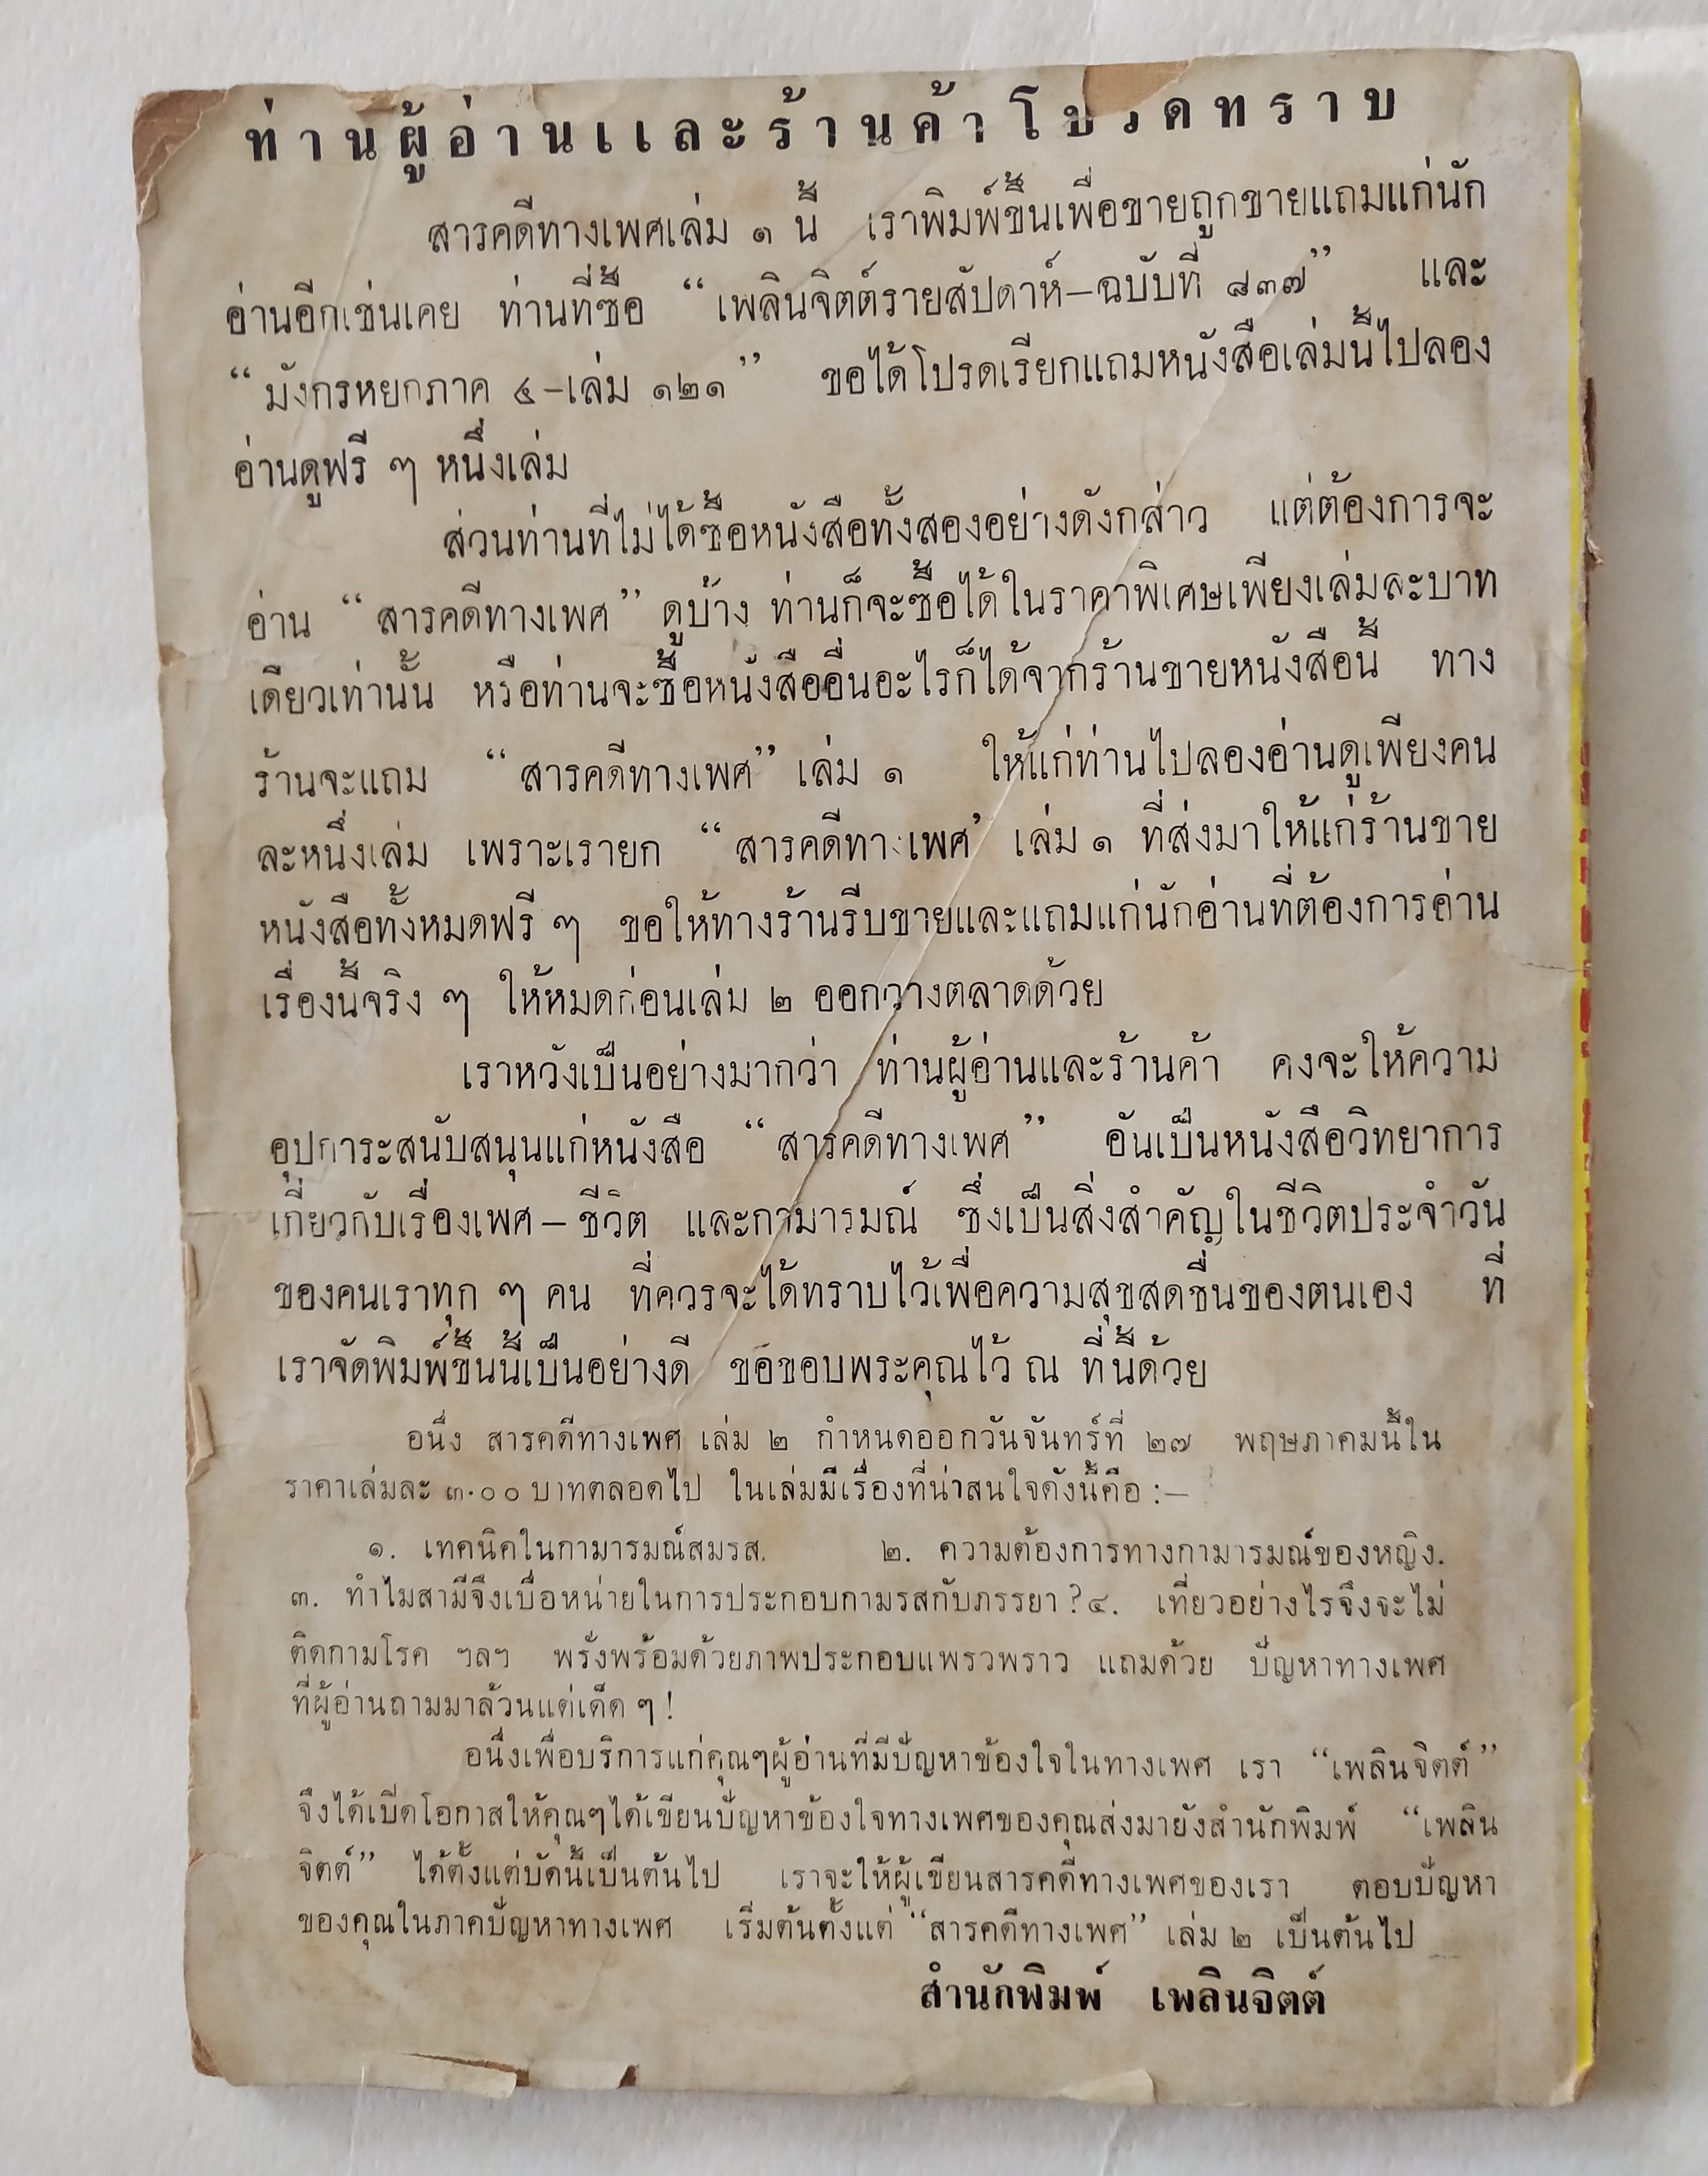 ท่านผู้อ่านและร้านค้าโปรดทราบ
สารคดีทางเพศเล่ม ๑ นี้ เราพิมพ์ขึ้นเพื่อขายถูกขายแถมแก่นัก
อ่านอีกเช่นเคย ท่านที่ซื้อ “เพลินจิตต์รายสัปดาห์–ฉบับที่ ๘๓๗” และ
“มังกรหยกภาค ๔–เล่ม ๑๒๑” ขอได้โปรดเรียกแถมหนังสือเล่มนี้ไปลอง
อ่านดูฟรี ๆ หนึ่งเล่ม
ส่วนท่านที่ไม่ได้ซื้อหนังสือทั้งสองอย่างดังกล่าว แต่ต้องการจะ
อ่าน “สารคดีทางเพศ” ดูบ้าง ท่านก็จะซื้อได้ในราคาพิเศษเพียงเล่มละบาท
เดียวเท่านั้น หรือท่านจะซื้อหนังสืออื่นอะไรก็ได้จากร้านขายหนังสือนี้ ทาง
ร้านจะแถม “สารคดีทางเพศ” เล่ม ๑ ให้แก่ท่านไปลองอ่านดูเพียงคน
ละหนึ่งเล่ม เพราะเรายก “สารคดีทางเพศ’ เล่ม ๑ ที่ส่งมาให้แก่ร้านขาย
หนังสือทั้งหมดฟรี ๆ ขอให้ทางร้านรีบขายและแถมแก่นักอ่านที่ต้องการอ่าน
เรื่องนี้จริง ๆ ให้หมดก่อนเล่ม ๒ ออกวางตลาดด้วย
เราหวังเป็นอย่างมากว่า ท่านผู้อ่านและร้านค้า คงจะให้ความ
อุปการะสนับสนุนแก่หนังสือ “สารคดีทางเพศ” อันเป็นหนังสือวิทยาการ
เกี่ยวกับเรื่องเพศ–ชีวิต และกามารมณ์ ซึ่งเป็นสิ่งสำคัญในชีวิตประจำวัน
ของคนเราทุก ๆ คน ที่ควรจะได้ทราบไว้เพื่อความสุขสดชื่นของตนเอง ที่
เราจัดพิมพ์ขึ้นนี้เป็นอย่างดี ขอขอบพระคุณไว้ ณ ที่นี้ด้วย
อนึ่ง สารคดีทางเพศ เล่ม ๒ กำหนดออกวันจันทร์ที่ ๒๗ พฤษภาคมนี้ใน
ราคาเล่มละ ๓.๐๐ บาทตลอดไป ในเล่มมีเรื่องที่น่าสนใจดังนี้คือ :–
๑. เทคนิคในกามารมณ์สมรส. ๒. ความต้องการทางกามารมณ์ของหญิง.
๓. ทำไมสามีจึงเบื่อหน่ายในการประกอบกามรสกับภรรยา ? ๔. เที่ยวอย่างไรจึงจะไม่
ติดกามโรค ฯลฯ พรั่งพร้อมด้วยภาพประกอบแพรวพราว แถมด้วย ปัญหาทางเพศ
ที่ผู้อ่านถามมาล้วนแต่เด็ด ๆ !
อนึ่งเพื่อบริการแก่คุณๆผู้อ่านที่มีปัญหาข้องใจในทางเพศ เรา “เพลินจิตต์”
จึงได้เปิดโอกาสให้คุณๆได้เขียนปัญหาข้องใจทางเพศของคุณส่งมายังสำนักพิมพ์ “เพลิน
จิตต์” ได้ตั้งแต่บัดนี้เป็นต้นไป เราจะให้ผู้เขียนสารคดีทางเพศของเรา ตอบปัญหา
ของคุณในภาคปัญหาทางเพศ เริ่มต้นตั้งแต่ “สารคดีทางเพศ” เล่ม ๒ เป็นต้นไป
สำนักพิมพ์ เพลินจิตต์